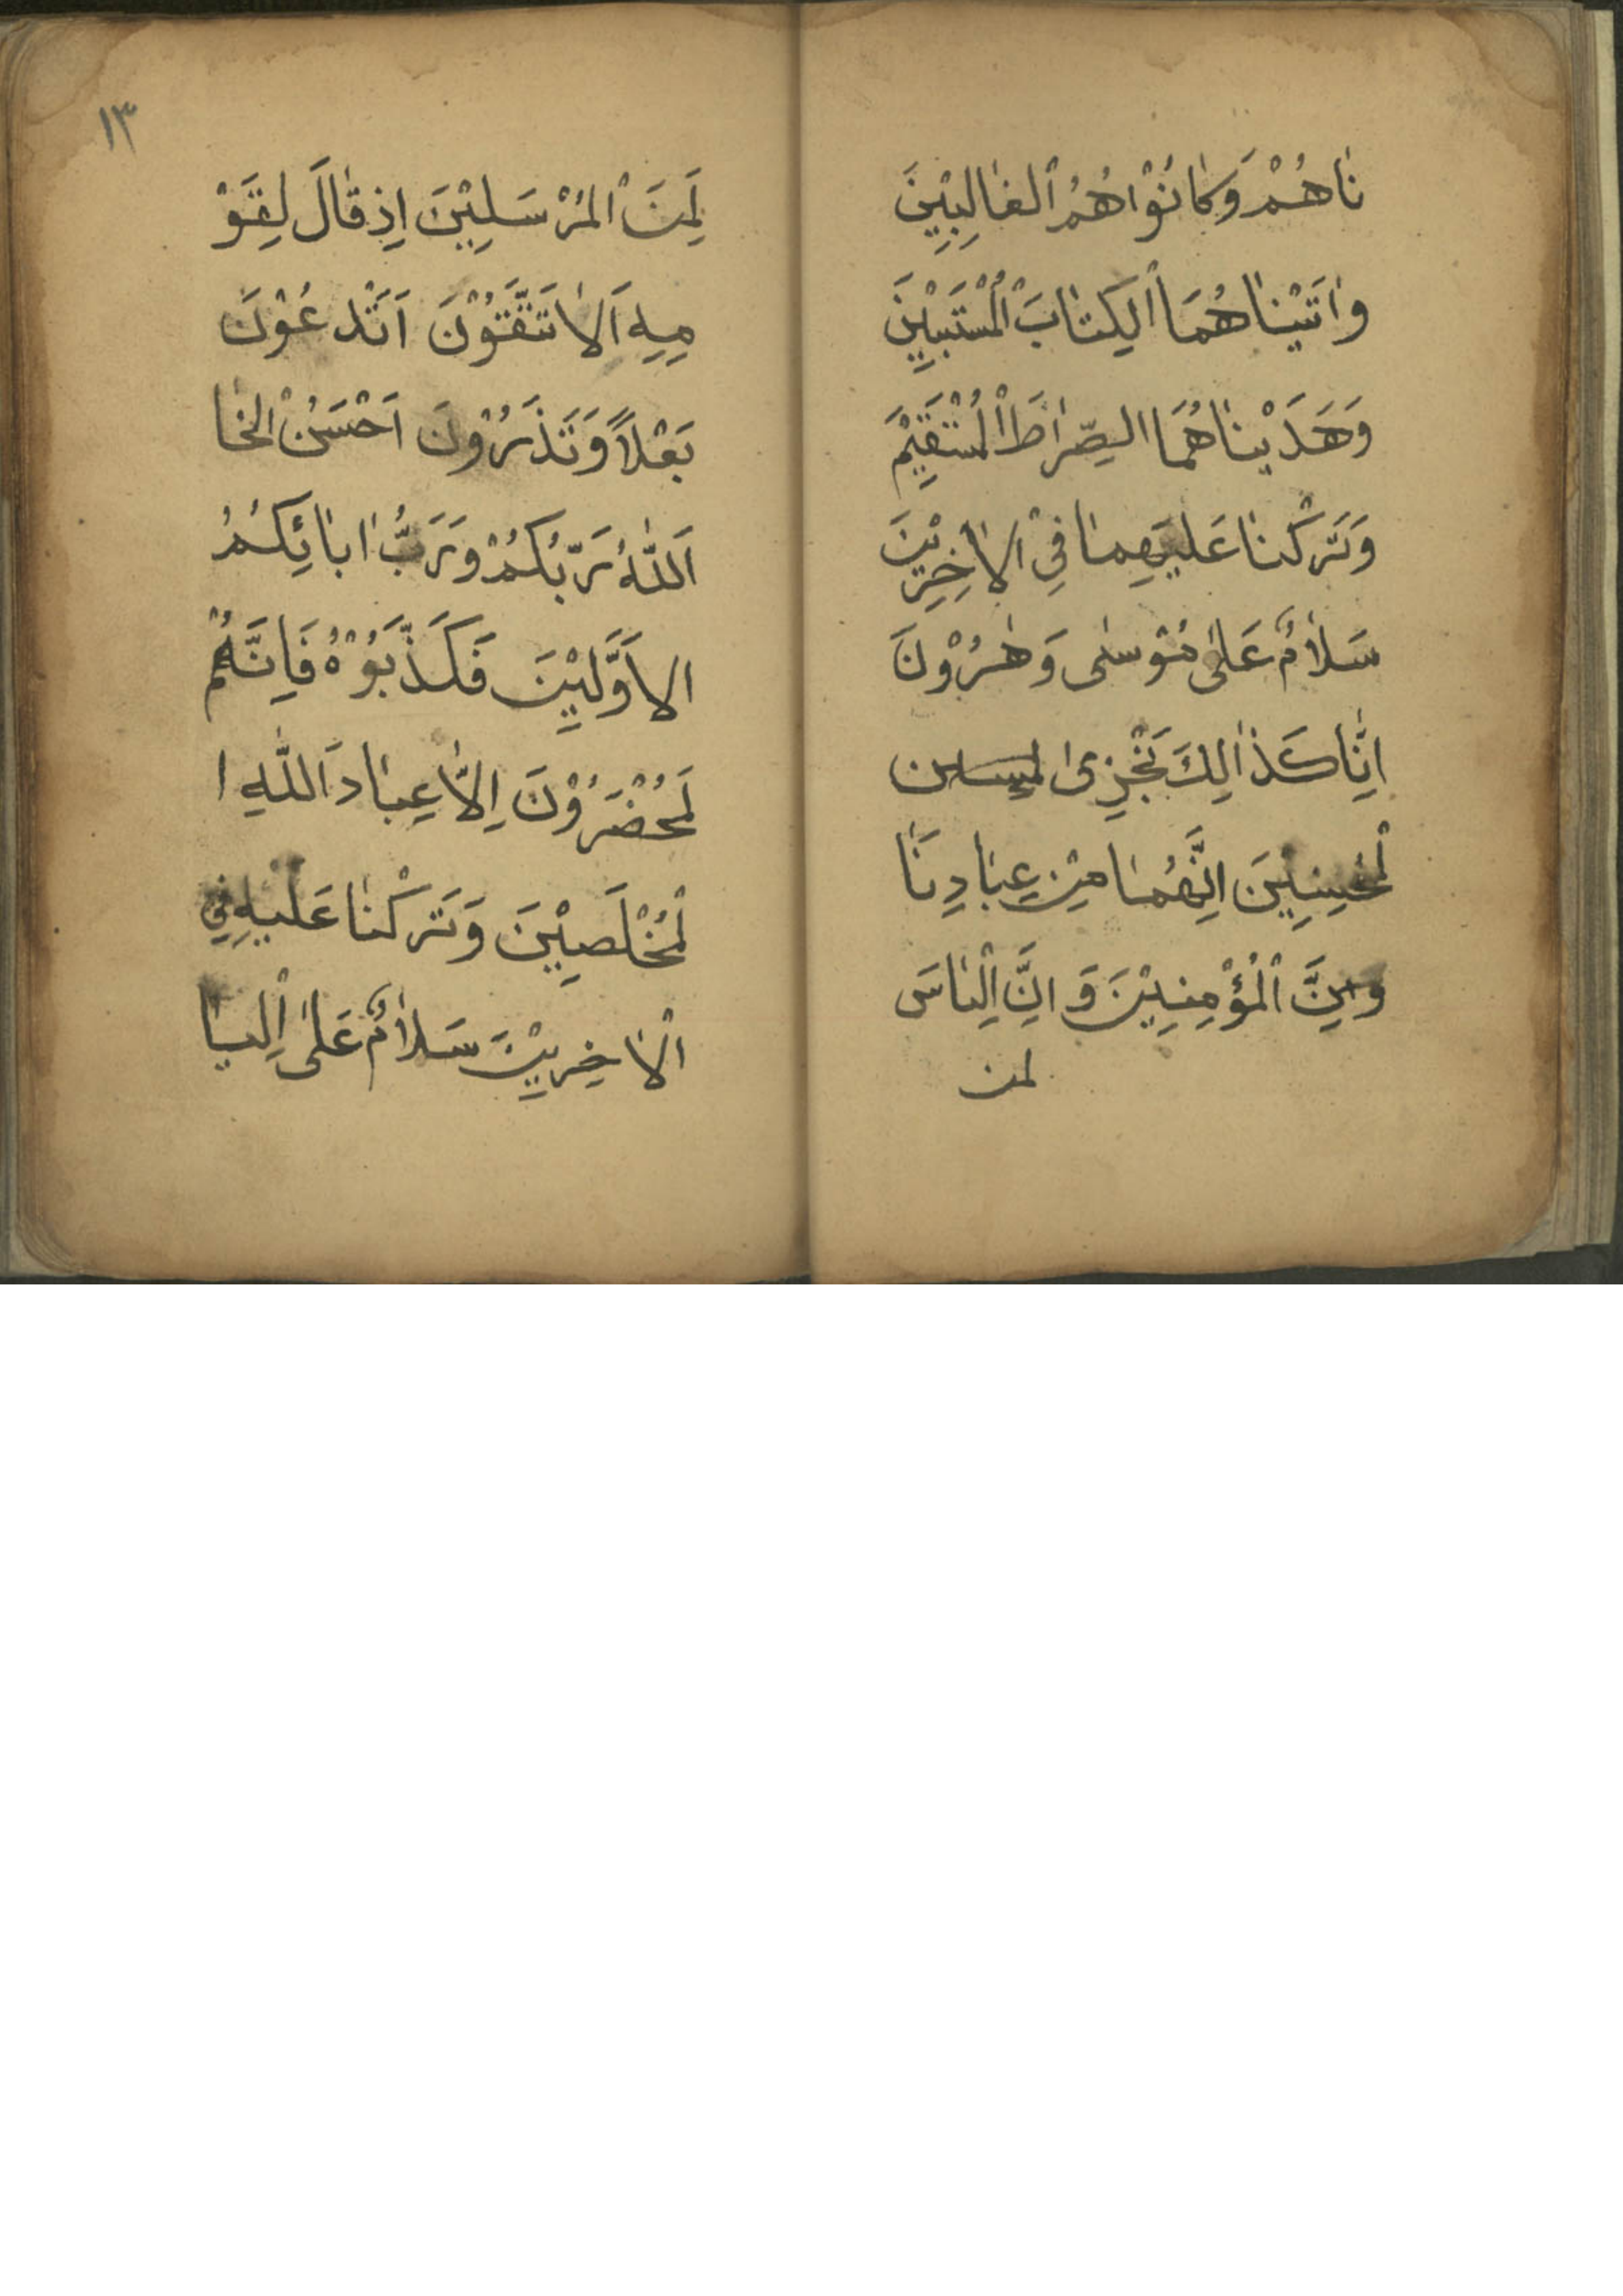 نَاهُمْ وَكَانُوْا هُمُ الْغَالِبِيْنَ
وَاتَيْنَاهُمَا الْكِتَابَ الْمُسْتَبِيْنَ
وَهَدَيْنَاهُمَا الصِّرَاطَ الْمُسْتَقِيْمَ
وَتَرَكْنَا عَلَيْهِمَا فِي الْاٰخِرِيْنَ
سَلَامٌ عَلٰى مُوْسٰى وَهٰرُوْنَ
اِنَّا كَذَالِكَ نَجْزِى
لْمُحْسِنِيْنَ اِنَّهُمَا مِنْ عِبَادِنَا
الْمُؤْمِنِيْنَ وَاِنَّ اِلْيَاسَ
لمن
لَمِنَ الْمُرْسَلِيْنَ اِذْ قَالَ لِقَوْ
مِهِ اَلَا تَتَّقُوْنَ اَتَدْعُوْنَ
بَعْلًا وَتَذَرُوْنَ اَحْسَنُ الْخَا
اَللّٰهُ رَبُّكُمْ وَرَبُّ ابَائِكُمُ
الاَوَّلِيْنَ فَكَذَّبُوْهُ فَاِنَّهُمْ
لَمُحْضَرُوْنَ اِلَّا عِبَادَ اللّٰهِ ا
لْمُخْلَصِيْنَ وَتَرَكْنَا عَلَيْهِ فِي
الْاٰخِرِيْنَ سَلَامٌ عَلٰى اِلْيَا
١٣